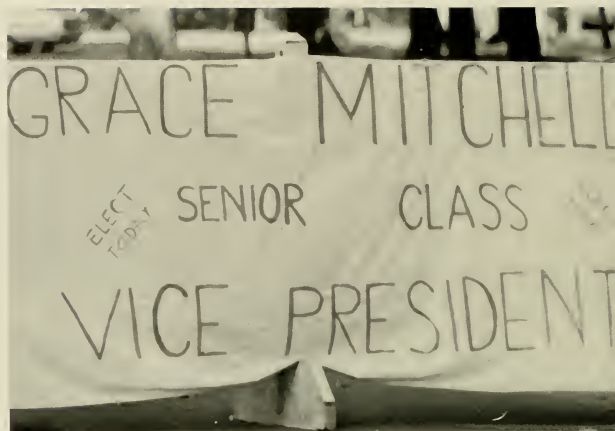 GRACE MITCHELL
ELECT
TODAY
SENIOR CLASS
VICE PRESIDENT